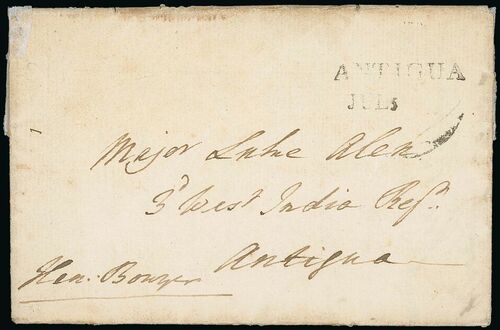 ANTIGUA
JUL 5
Major Luke Alen
3d West India Regt.
Antigua
Hen: Bowyer